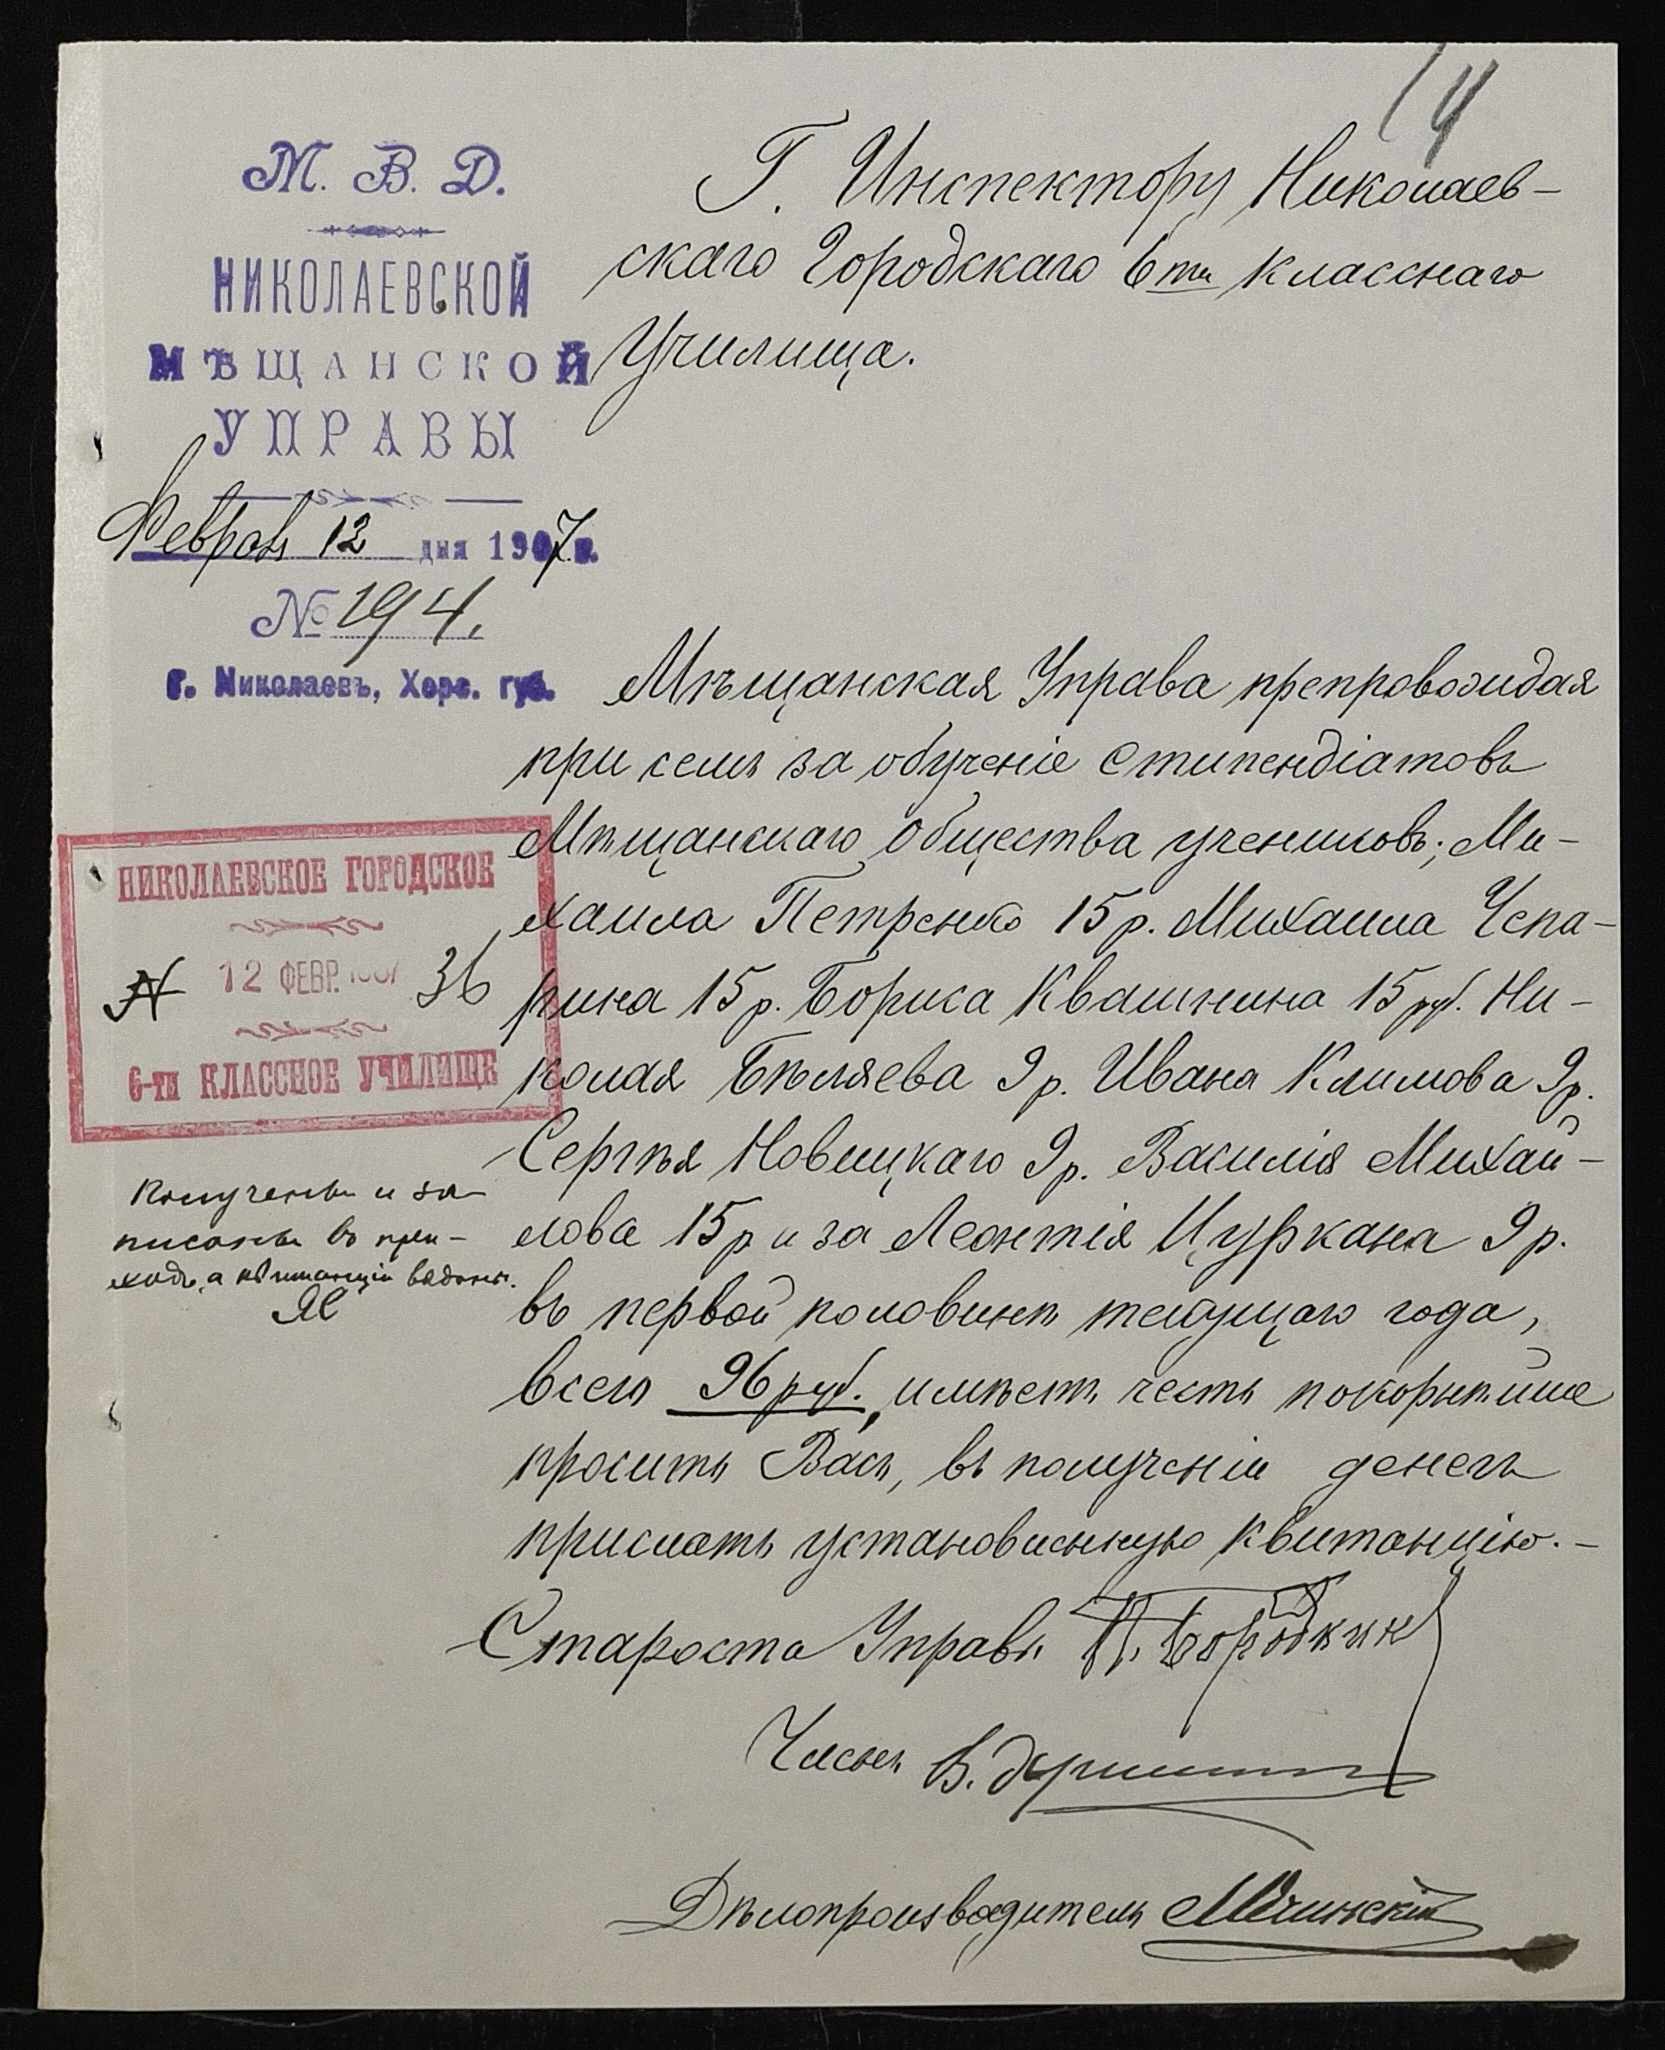 14
М. В. Д.
НИКОЛАЕВСКОЙ
МѢЩАНСКОЙ
УПРАВЫ
Февраля 12 дня 1907 г.
№ 194.
Г. Николаевъ, Херс. губ.
Г. Инспектору Николаев-
скаго Городскаго 6ти класснаго
Училища.
Мѣщанская Управа препровождая
при семъ за обученіе стипендіатовъ
Мѣщанскаго Общества учениковъ; Ми-
хаила Петренко 15 р. Михаила Чепа-
рина 15 р. Бориса Квашнина 15 руб. Ни-
колая Бѣляева 9 р. Ивана Климова 9 р.
Сергѣя Новицкаго 9 р. Василія Михай-
лова 15 р и за Леонтія Цуркана 9 р.
въ первой половинѣ текущаго года,
всего 96 руб., имѣетъ честь покорнѣйше
просить Васъ, въ полученіи денегъ
прислать установленную квитанцію. -
Староста Управы П. Бородкин
Членъ В.
Дѣлопроизводитель
НИКОЛАЕВСКОЕ ГОРОДСКОЕ
№ 12 ФЕВР. 1907 36
6-ти КЛАССНОЕ УЧИЛИЩЕ
Получены и за-
писаны въ при-
ходъ, а квитанціи выданы.